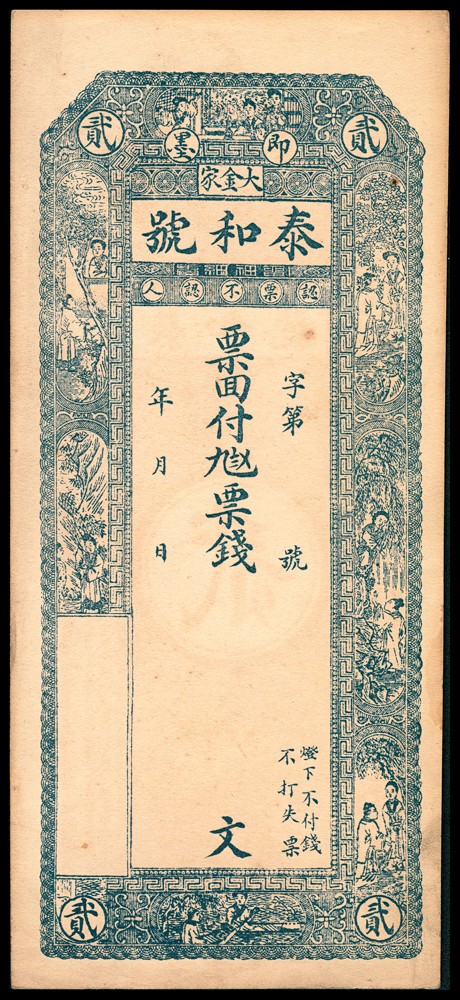 貳
貳
即墨
大金家
泰和號
認票不認人
字第 號
票面付票錢 文
年 月 日
燈下不付錢
不打失票
貳
貳